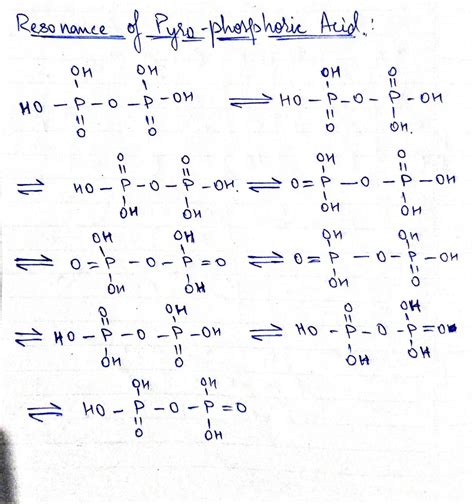 Resonance of Pyro-phosphoric Acid.:
OH OH O
OH
HO - P - O - P - OH ⇌ HO - P - O - P - OH
O O O OH.
O O OH O
⇌ HO - P - O - P - OH. ⇌ O = P - O - P - OH
OH OH OH OH
OH OH OH OH
⇌ O = P - O - P = O ⇌ O = P - O - P - OH
OH OH OH O
O OH O OH
⇌ HO - P - O - P - OH ⇌ HO - P - O - P = O
OH O OH OH
OH OH
⇌ HO - P - O - P = O
O OH